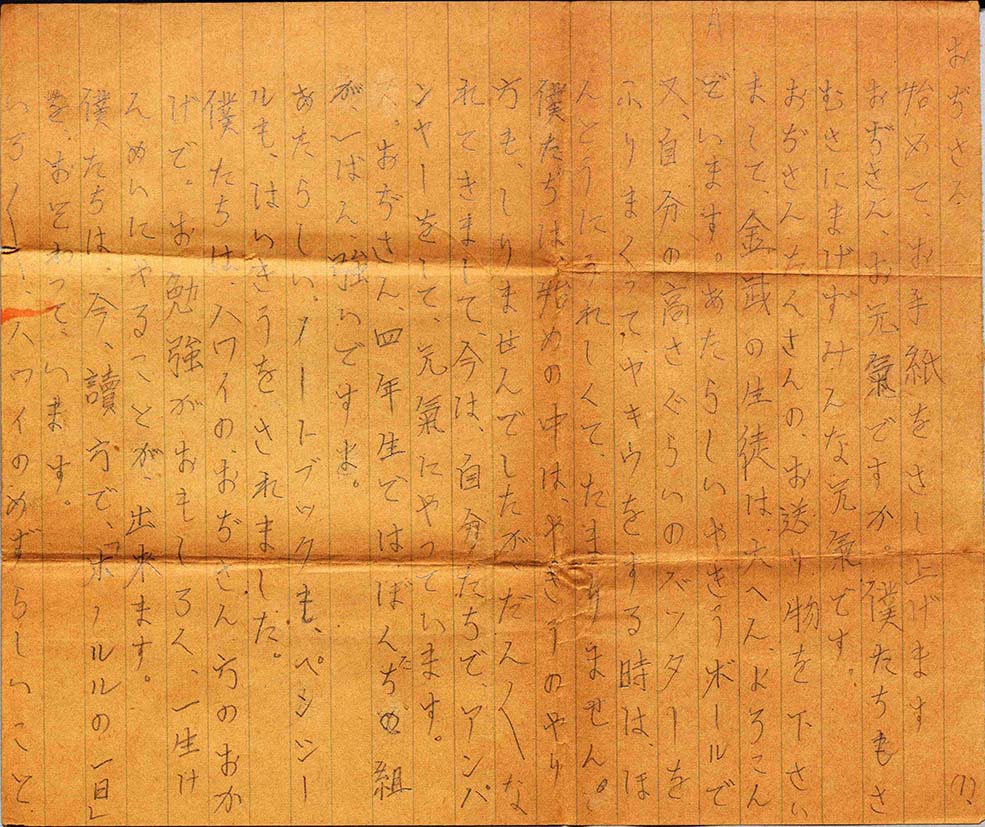 おぢさん
始めて、お手紙をさし上げます
おぢさん、お元氣ですか。僕たちもさ
むさにまけずみんな元氣です。
おぢさんたくさんの、お送り物を下さい
まして、金武の生徒は、大へん、よろこん
でいます。あたらしいやきうボールで
又、自分の高さぐらいのバッターを
ふりまくって、ヤキウをする時は、ほ
んとうにうれしくて、たまりません。
僕たちは、始めの中は、やきうのやり
方も、しりませんでしたがだん〱な
れてきまして、今は、自分たちで、アンパ
ンヤーをして、元氣にやっています。
おぢさん、四年生では、ぼくたちの組
が、一ばん、強いですよ。
あたらしい、ノートブックも、ペンシー
ルも、はいきうをされました。
僕たちは、ハワイの、おぢさん方のおか
げで。お勉強がおもしろく、一生け
んめいにやることが、出来ます。
僕たちは、今、讀方で、「ホノルルの一日」
を、おそわって、います。
いろ〱、ハワイのめずらしいこと